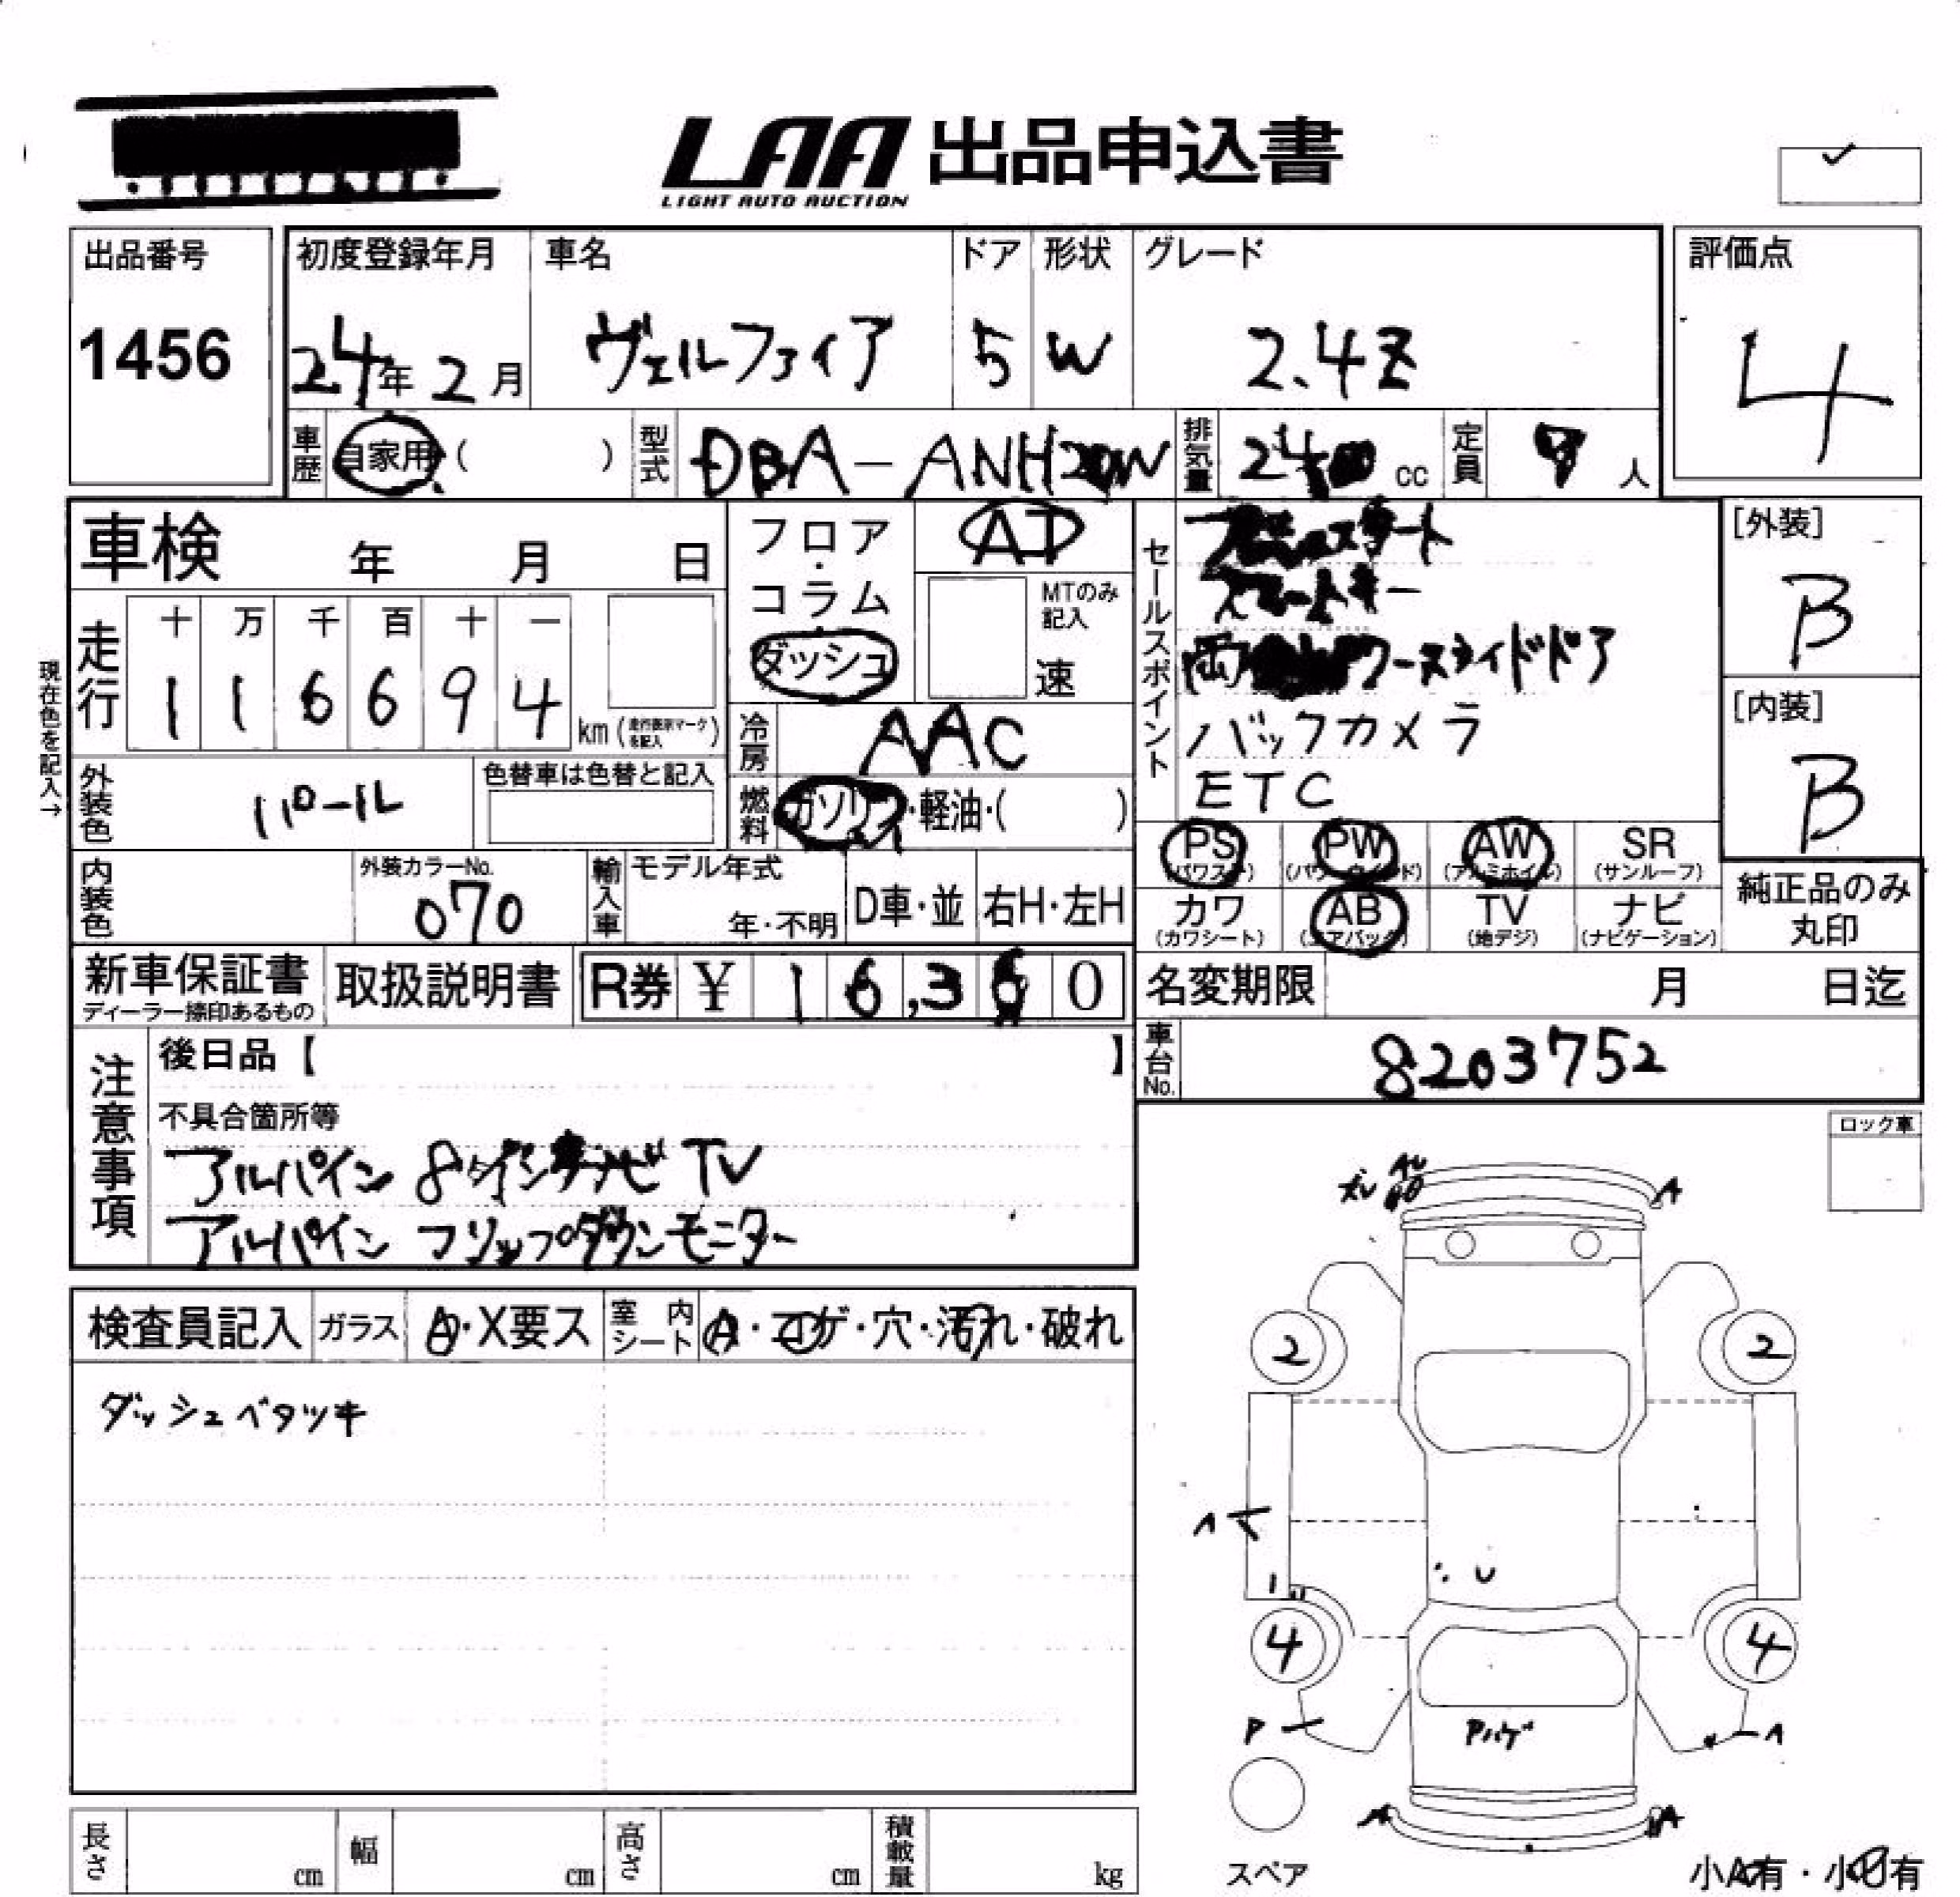 LAA 出品申込書
LIGHT AUTO AUCTION
出品番号
1456
初度登録年月
24年 2月
車名
ヴェルファイア
ドア
5
形状
W
グレード
2.4Z
評価点
4
車歴
自家用 ( )
型式
DBA-ANH20W
排気量
2400 cc
定員
人
車検 年 月 日
走行
十 万 千 百 十 一
1 1 6 6 9 4
km (走行表示マークを記入)
現在色を記入→
外装色
パール
色替車は色替と記入
内装色
外装カラーNo.
070
フロア・
コラム・
ダッシュ
AT
MTのみ
記入
速
冷房
AAC
燃料
ガソリン・軽油・( )
輸入車
モデル年式
年・不明
D車・並
右H・左H
セールスポイント
プッシュスタート
スマートキー
両パワースライドドア
バックカメラ
ETC
[外装]
B
[内装]
B
PS
(パワステ)
PW
(パワーウインド)
AW
(アルミホイル)
SR
(サンルーフ)
カワ
(カワシート)
AB
(エアバック)
TV
(地デジ)
ナビ
(ナビゲーション)
純正品のみ
丸印
新車保証書
ディーラー捺印あるもの
取扱説明書
R券 ¥ 1 6,3 0
名変期限 月 日迄
車台No.
8203752
注意事項
後日品【 】
不具合箇所等
アルパイン 8インチナビ TV
アルパイン フリップダウンモニター
ロック車
検査員記入
ガラス
A・X要ス
室内シート
A・コゲ・穴・汚れ・破れ
ダッシュベタツキ
A
2
2
U
4
4
P
Pハゲ
A
A
A
スペア
小A有・小U有
長さ cm
幅 cm
高さ cm
積載量 kg